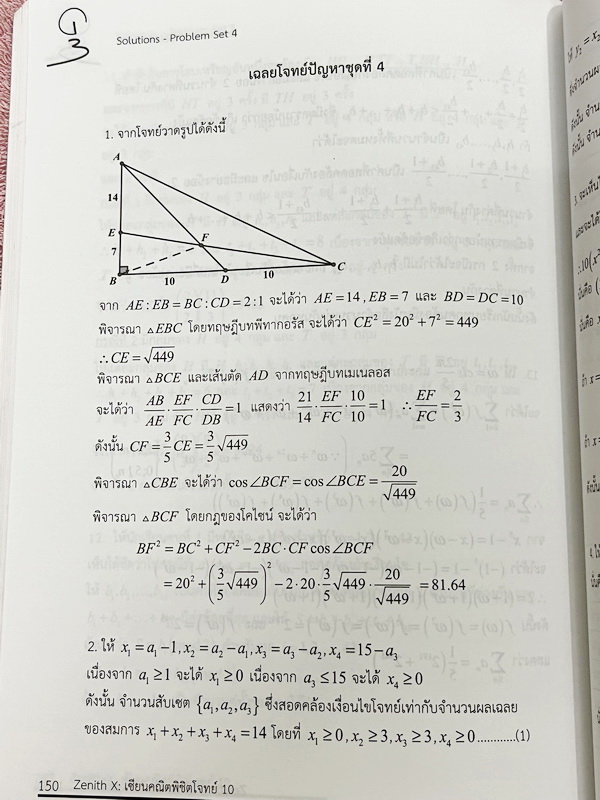 G
3
Solutions - Problem Set 4
เฉลยโจทย์ปัญหาชุดที่ 4
1. จากโจทย์วาดรูปได้ดังนี้
A
14
E
F
7
B
10
D
10
C
จาก AE : EB = BC : CD = 2 : 1 จะได้ว่า AE = 14, EB = 7 และ BD = DC = 10
พิจารณา △EBC โดยทฤษฎีบทพีทากอรัส จะได้ว่า CE² = 20² + 7² = 449
∴ CE = √449
พิจารณา △BCE และเส้นตัด AD จากทฤษฎีบทเมเนลอส
จะได้ว่า AB/AE · EF/FC · CD/DB = 1 แสดงว่า 21/14 · EF/FC · 10/10 = 1 ∴ EF/FC = 2/3
ดังนั้น CF = 3/5 CE = 3/5 √449
พิจารณา △CBE จะได้ว่า cos∠BCF = cos∠BCE = 20/√449
พิจารณา △BCF โดยกฎของโคไซน์ จะได้ว่า
BF² = BC² + CF² − 2BC · CF cos∠BCF
= 20² + (3/5 √449)² − 2 · 20 · 3/5 √449 · 20/√449 = 81.64
2. ให้ x₁ = a₁ − 1, x₂ = a₂ − a₁, x₃ = a₃ − a₂, x₄ = 15 − a₃
เนื่องจาก a₁ ≥ 1 จะได้ x₁ ≥ 0 เนื่องจาก a₃ ≤ 15 จะได้ x₄ ≥ 0
ดังนั้น จำนวนสับเซต {a₁, a₂, a₃} ซึ่งสอดคล้องเงื่อนไขโจทย์เท่ากับจำนวนผลเฉลย
ของสมการ x₁ + x₂ + x₃ + x₄ = 14 โดยที่ x₁ ≥ 0, x₂ ≥ 3, x₃ ≥ 3, x₄ ≥ 0...........(1)
150 Zenith X: เซียนคณิตพิชิตโจทย์ 10